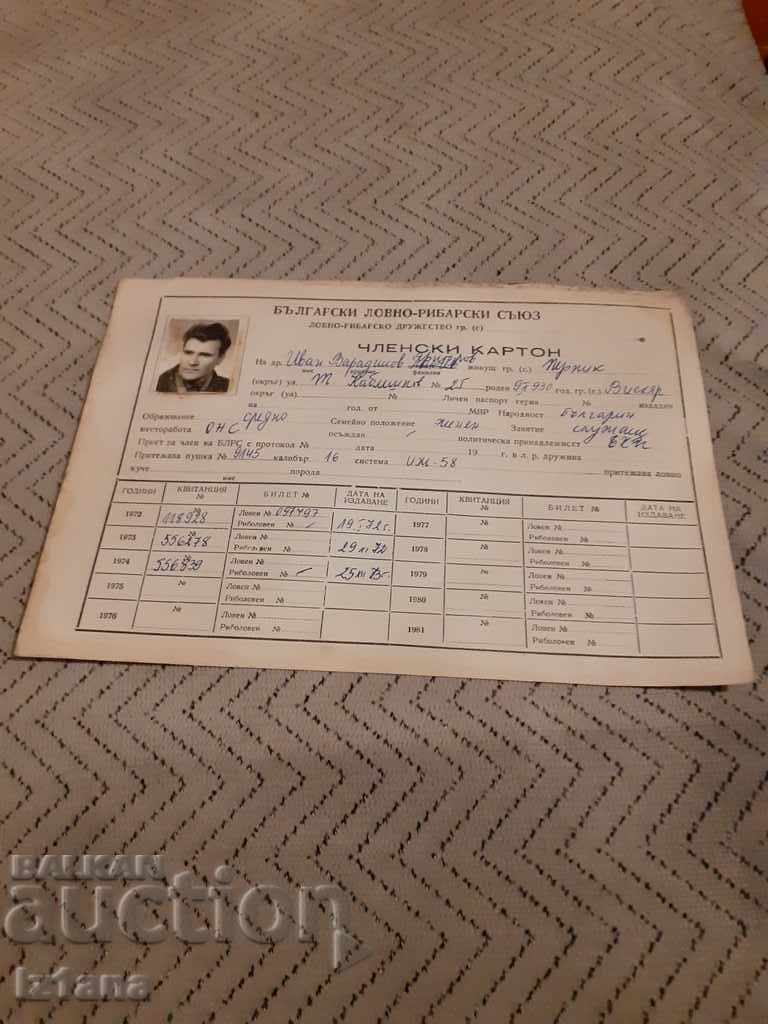 БЪЛГАРСКИ ЛОВНО-РИБАРСКИ СЪЮЗ
ЛОВНО-РИБАРСКО ДРУЖЕСТВО гр. (с)
ЧЛЕНСКИ КАРТОН
На др. Иван живущ гр. (с.) Перник
име презиме фамилия
(окръг) ул. № 25 роден год. гр. (с.) Вискяр
окръг (ул) № Личен паспорт серия № издаден
на год. от МВР Народност българин
Образование средно Семейно положение женен Занятие служащ
месторабота ОНС осъждан политическа принадлежност БКП
Приет за член на БЛРС с протокол № дата 19 г. в л. р. дружина
Притежава пушка № 9145 калибър 16 система ИЖ-58
куче порода притежава ловно
име
ГОДИНИ КВИТАНЦИЯ № БИЛЕТ № ДАТА НА ИЗДАВАНЕ ГОДИНИ КВИТАНЦИЯ № БИЛЕТ № ДАТА НА ИЗДАВАНЕ
1972 № 118928 Ловен № Риболовен 1977 № Ловен № Риболовен №
1973 № 556278 Ловен № Риболовен № 1978 № Ловен № Риболовен №
1974 № 556839 Ловен № Риболовен № 1979 № Ловен № Риболовен №
1975 № Ловен № Риболовен № 1980 № Ловен № Риболовен №
1976 № Ловен № Риболовен № 1981 № Ловен № Риболовен №
БАЛКАН
auction
Iz1ana